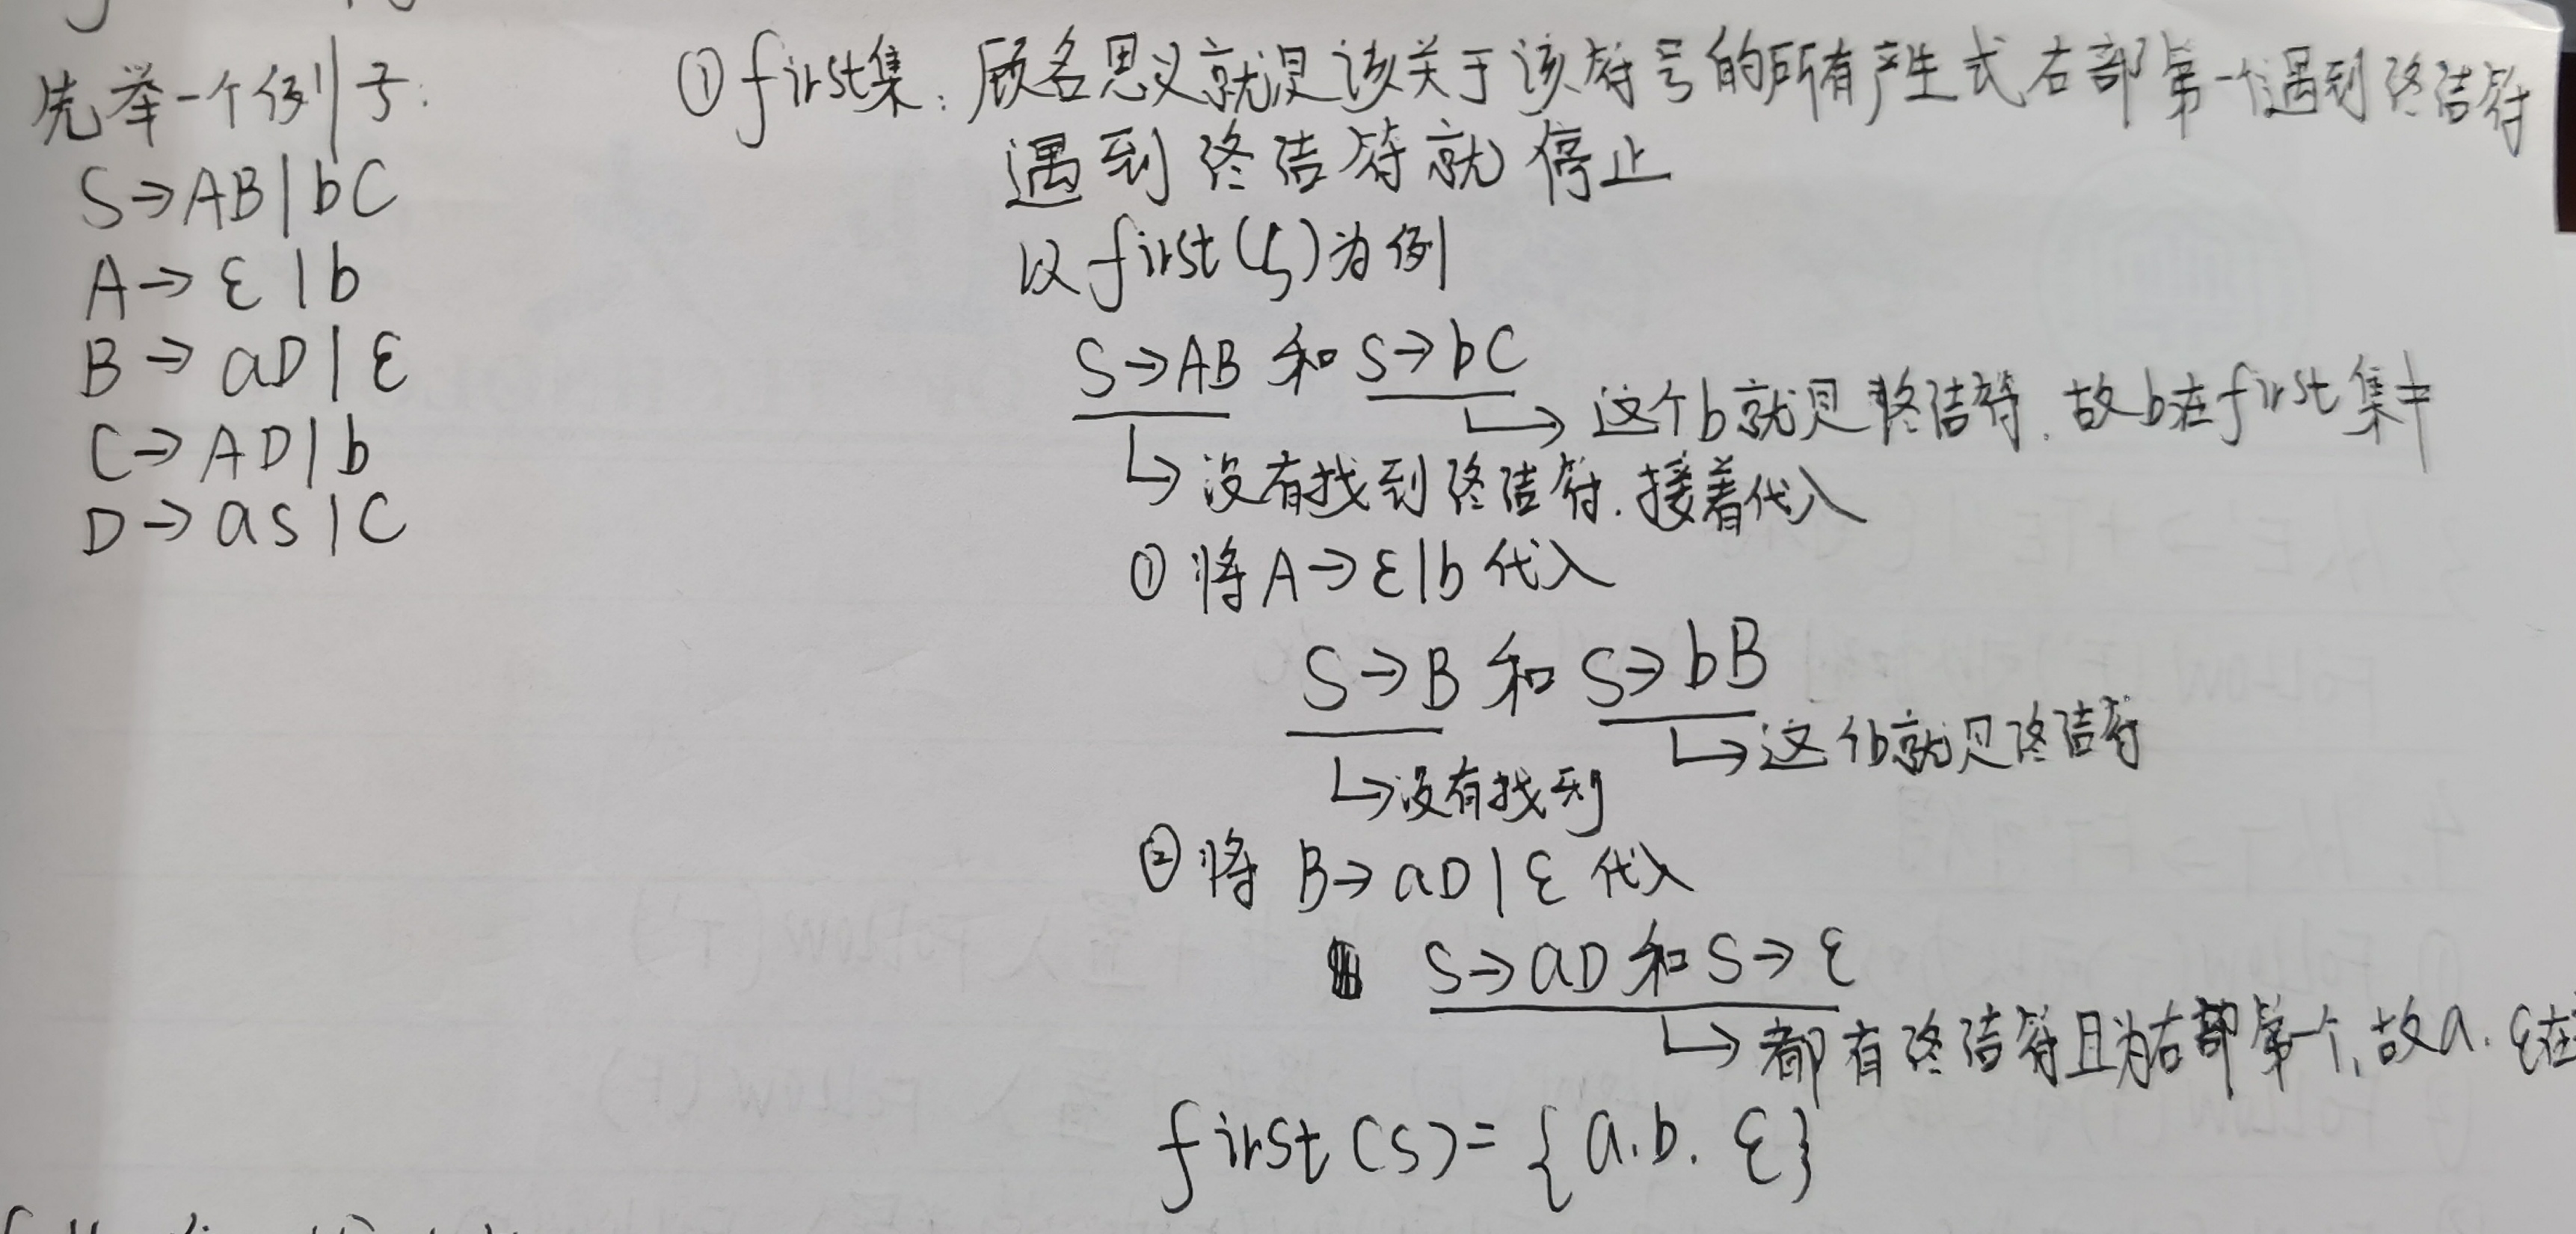 先举一个例子:
S→AB|bC
A→ε|b
B→aD|ε
C→AD|b
D→aS|C
①first集: 顾名思义就是该关于该符号的所有产生式右部第一个遇到终结符
遇到终结符就停止
以first(S)为例
S→AB和S→bC
↳这个b就是终结符.故b在first集中
↳没有找到终结符.接着代入
①将A→ε|b代入
S→B和S→bB
↳这个b就是终结符
↳没有找到
②将B→aD|ε代入
S→aD和S→ε
↳都有终结符且为右部第一个,故a.ε在
first(S)={a.b.ε}